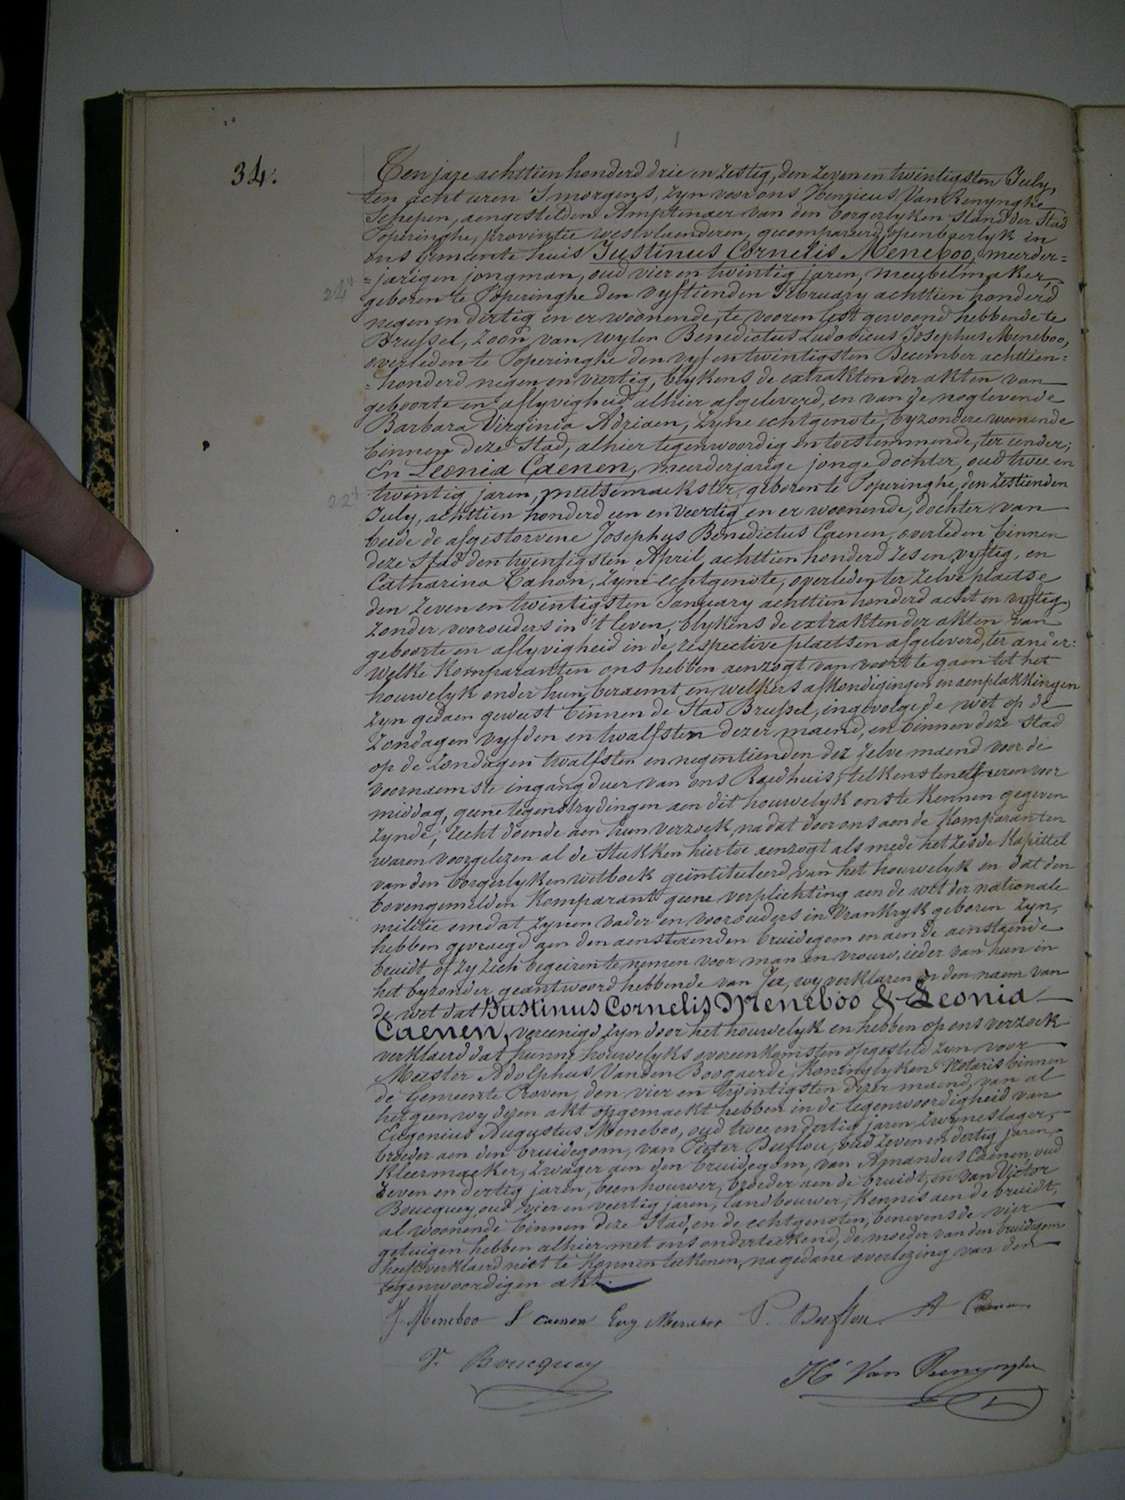 34.
Ten jare achttien honderd drie en zestig, den zeven en twintigsten July,
ten acht uren 's morgens, zyn voor ons Henricus Van Renynghe
Schepen, aengestelden Amptenaer van den borgerlyken stand der Stad
Poperinghe, provintie westvlaenderen, gecompareerd openbaerlyk in
ons Gemeente huis Justinus Cornelis Meneboo, meerder-
24
-jarigen jongman, oud vier en twintig jaren, meubelmaker,
geboren te Poperinghe den vyftienden February achttien honderd
negen en dertig en er woonende, te vooren lest gewoond hebbende te
Brussel, zoon van wylen Benedictus Ludovicus Josephus Meneboo,
overleden te Poperinghe den vyf en twintigsten December achttien=
=honderd negen en veertig, blykens de extrakten der akten van
geboorte en aflyvigheid alhier afgeleverd, en van de noglevende
Barbara Virginia Adriaen, zyne echtgenote, byzondere woonende
binnen deze Stad, alhier tegenwoordig en toestemmende, ter eender;
En Leonia Caenen, meerderjarige jonge dochter, oud twee en
22
twintig jaren, meutsemaekster, geboren te Poperinghe, den zestienden
July, achttien honderd een en veertig en er woonende, dochter van
beide de afgestorvene Josephus Benedictus Caenen, overleden binnen
deze Stad den twintigsten April achttien honderd zes en vyftig, en
Catharina Cahon, zyne echtgenote, overleden ter zelve plaetse
den zeven en twintigsten January achttien honderd acht en vyftig,
zonder voorouders in 't leven, blykens de extrakten der akten van
geboorte en aflyvigheid in de respective plaetsen afgeleverd, ter ander:
Welke Komparanten ons hebben aenzogt van voort te gaen tot het
houwelyk onder hun beraemt en welkers afkondigingen en aenplakkingen
zyn gedaen geweest binnen de Stad Brussel, ingevolge de wet op de
zondagen vyfden en twalfsten dezer maend, en binnen deze stad
op de zondagen twalfsten en negentienden der zelve maend voor de
voornaemste ingangdeur van ons Raedhuis, telkens ten elf uren voor
middag, geene tegenstrydingen aen dit houwelyk ons te kennen gegeven
zynde, recht doende aen hun verzoek, na dat door ons aen de Komparanten
waren voorgelezen al de Stukken hier toe aenzogt als mede het zesde Kapittel
van den borgerlyken wetboek geïntituleerd, van het houwelyk en dat den
bovengemelden Komparant geene verplichting aen de wet der nationale
militie omdat zynen vader en voorouders in Vrankryk geboren zyn,
hebben gevraegd aen den aenstaenden bruidegom en aen de aenstaende
bruidt of zy zich begeiren te nemen voor man en vrouw, ieder van hun in
het byzonder geantwoord hebbende van Ja, wy verklaren in den naem van
de wet dat Justinus Cornelis Meneboo & Leonia
Caenen, vereenigd zyn door het houwelyk en hebben op ons verzoek
verklaerd dat hunne houwelyks overeenkomsten opgesteld zyn voor
Meester Adolphus Vanden Boogaerde, Koninglyken Notaris binnen
de Gemeente Proven, den vier en twintigsten dezer maend, van al
het geen wy dezen akt opgemaekt hebben in de tegenwoordigheid van
Eugenius Augustus Meneboo, oud twee en dertig jaren, zwyneslager,
broeder aen den bruidegom, van Pieter Duflou, oud zeven en dertig jaren,
Kleermaeker, zwager aen den bruidegom, van Amandus Caenen, oud
zeven en dertig jaren, beenhouwer, broeder aen de bruidt, en van Victor
Boucquey, oud vier en veertig jaren, landbouwer, kennis aen de bruidt,
al woonende binnen deze Stad, en de echtgenoten, benevens de vier
getuigen hebben alhier met ons onderteekend, de moeder van den bruidegom
heeft verklaerd niet te konnen teekenen, na gedane overlezing van den
tegenwoordigen akt.
J Meneboo L Caenen Eug Meneboo P. Duflou A Caenen
V. Boucquey
H. Van Renynghe